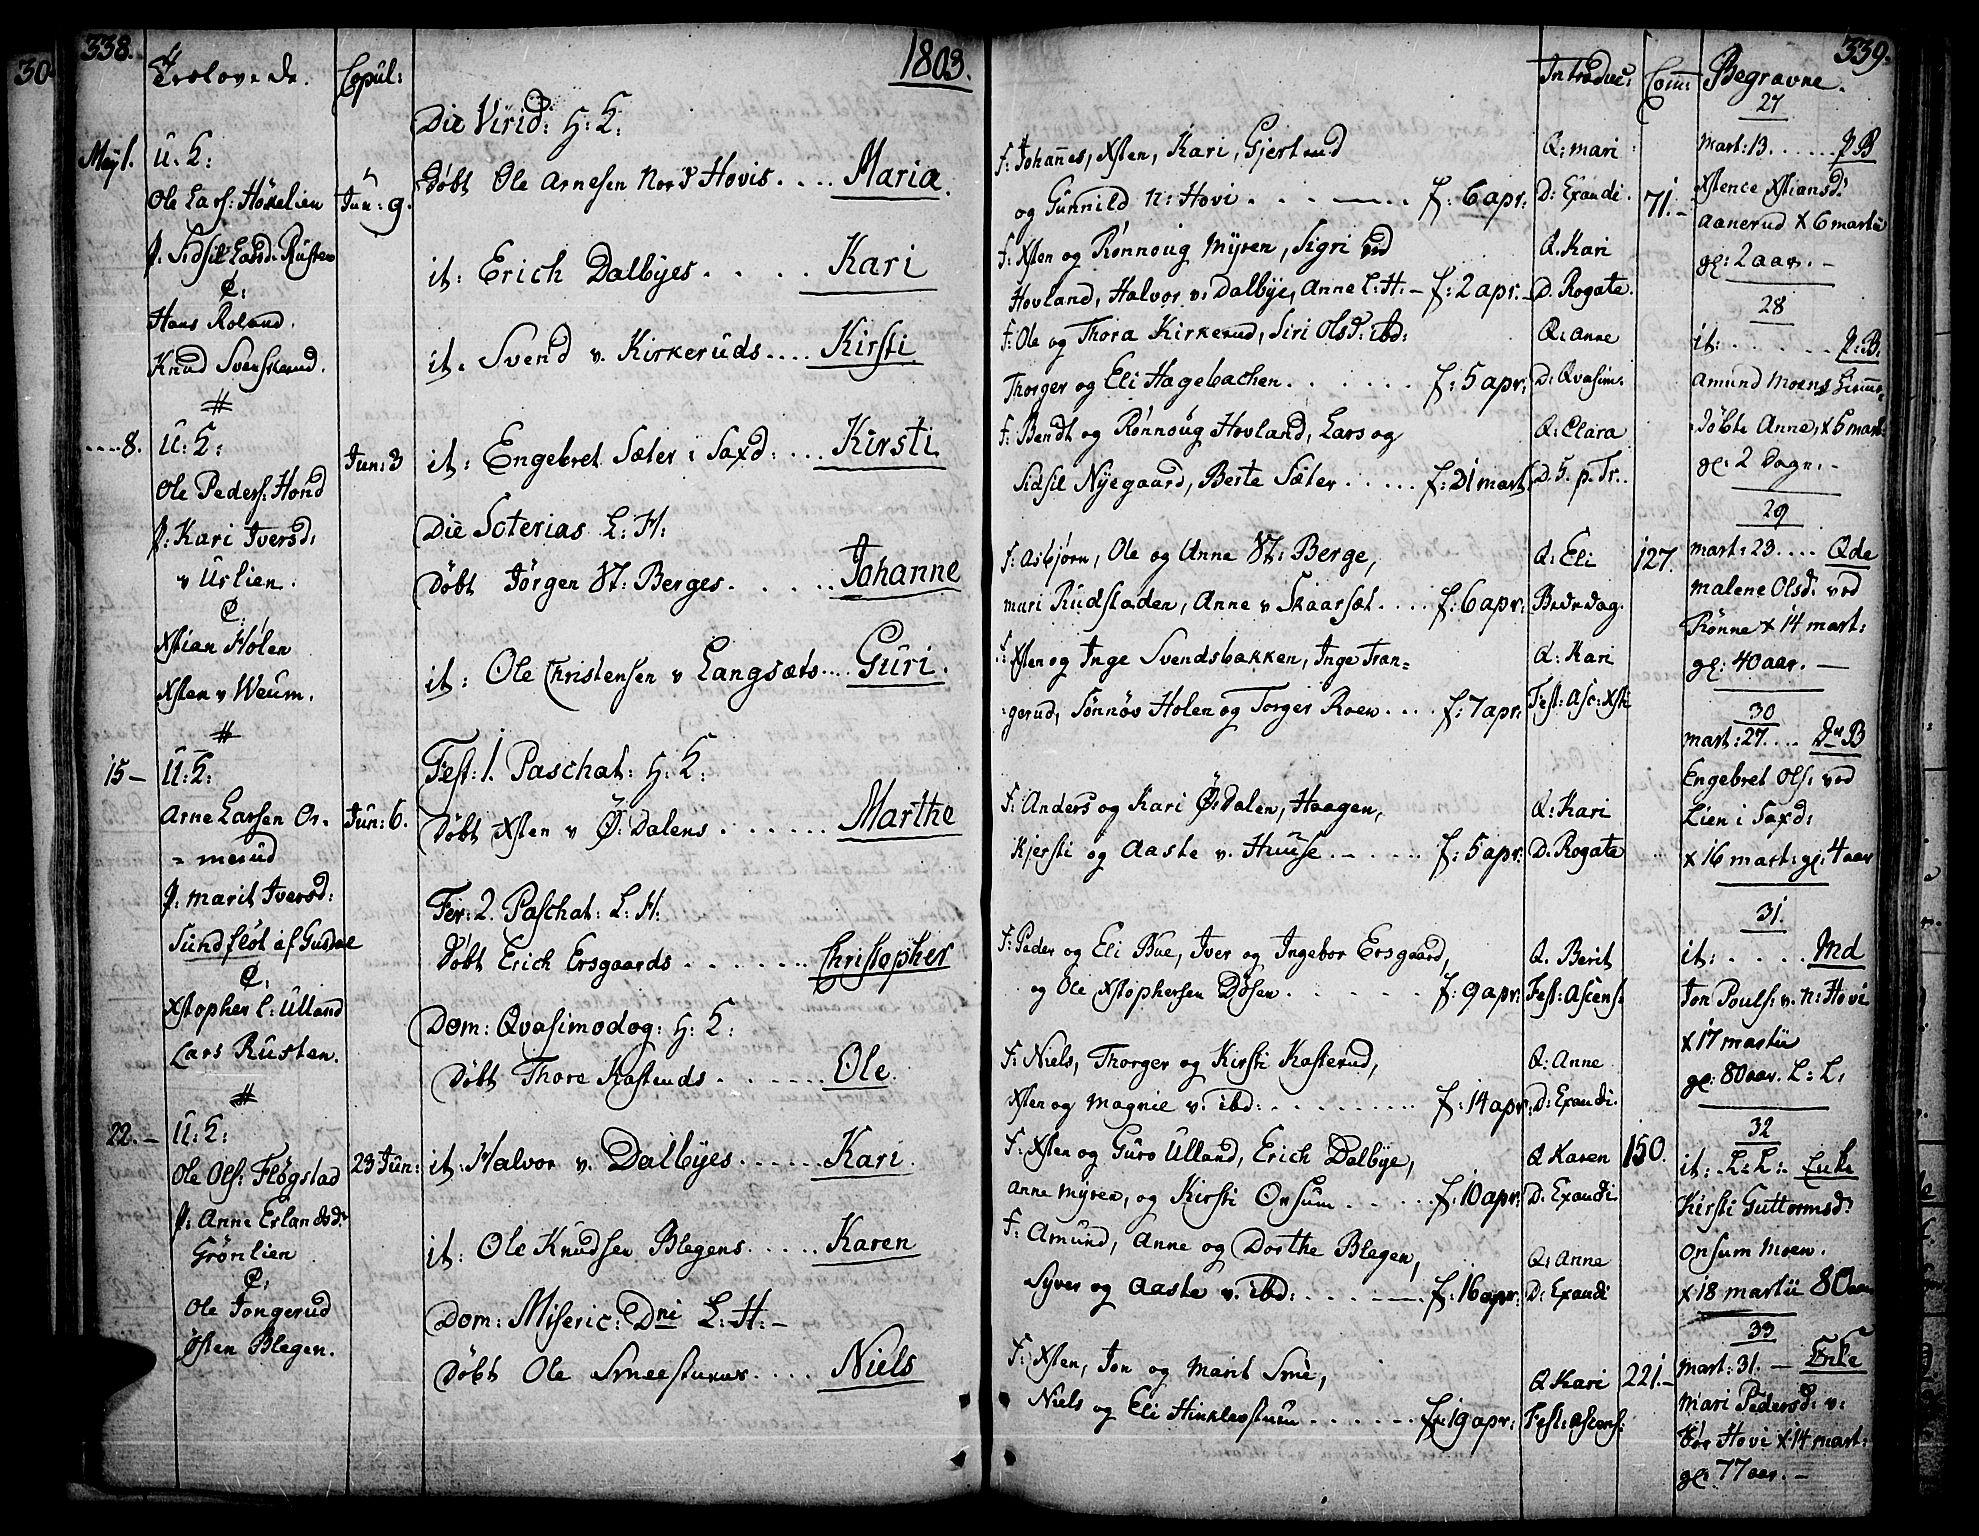 338.
Trolovede.
Copul:
1803.
May 1.
U. K:
Ole Lars: Hökelien
Jun: 9.
p. Sidsil Larsd. Rusten
C:
Hans Roland.
Knud Svenskerud.
#
....8.
U: K:
Ole Peders: Hond
Jun: 3
p: Kari Iversd:
v Urlien.
C:
Xstian Holen
Xsten v Weum.
#
15 –
U: K:
Arne Larsen Or-
Jun: 6.
= merud
p: marit Iversd:
Sundfløt af Gusdal
C:
Xstopher l: Ulland
Lars Rusten.
#
22. –
U: K:
Ole Ols: Flögstad
23 Jun:
p: Anne Erlandsd:
Grönlien
C:
Ole Tongerud
Østen Blegen.
Die Virid: H: K:
Døbt Ole Arnesen Nord Hovis .... Maria
it: Erich Dalbyes .... Kari
it. Svend v. Kirkeruds .... Kirsti
it: Engebret Sæter i Saxd: ... Kirsti
Die Soterias L: H:
Døbt Jörgen St: Berges ..... Johanne
it: Ole Christensen v Langsæts .... Guri.
Fest: 1. Paschat: H: K:
Døbt Xsten v Ø: Dalens ...... Marthe
Fer: 2. Paschat: L: H:
Døbt Erich Ersgaards ....... Christopher
Dom: Qvasimodog: H: K:
Døbt Thore Kasteruds ...... Ole
it: Halvor v. Dalbyes ..... Kari.
it: Ole Knudsen Blegens ..... Karen
Dom: Miseric: Dni L: H: –
Døbt Ole Smeestuens .... Niels
339.
Introduc:
Com:
Begravne.
F: Johannes, Xsten, Kari, Gjertrud
Q: mari
og Gunnild N: Hovi ..... f: 6 apr:
D: Exaudi.
71. –
F: Xsten og Rönnoug Myren, Sigri ved
Q: Kari
Hovland, Halvor v: Dalbye, Anne L: H: – f: 2 apr. –
D. Rogate.
F: Ole og Thora Kirkerud, Siri Olsd: ibd:
Q: Anne
Thorger og Eli Hagebachen ...... f: 5 apr:
D: Qvasim:
F: Bendt og Rönnoug Hovland, Lars og
Q: Clara
Sidsil Nyegaard, Berte Sæter ..... f: 21 mart
D. 5. p. Tr..
F: Asbjørn, Ole og Anne St: Berge,
Q: Eli
127.
mari Rudstaden, Anne v Skaarsæt .... f: 6 apr:
Bededag.
F: Xsten og Inge Svendsbakken, Inge Tran=
Q: Kari
:gerud, Sönnöv Holen og Torger Roen .... f: 7 apr:
Fest: Asc: Xsti
F: Anders og Kari Ø: Dalen, Haagen,
Q: Kari
Kjersti og Aaste v. Huuse ..... f: 5 apr:
D. Rogate
F: Peder og Eli Bue, Iver og Ingebor Ersgaard,
Q. Berit
og Ole Xstophersen Døsen ...... f: 9 apr:
Fest: Ascens:
F: Niels, Thorger og Kirsti Kasterud,
Q: Anne
Xsten og Magnie v. ibd: ......... f: 14 apr:
D: Exaudi.
F: Xsten og Guro Ulland, Erich Dalbye,
Q Karen
150.
Anne Myren, og Kirsti Onsum ..... f: 10 apr:
D: Exaudi
F: Amund, Anne og Dorthe Blegen,
Q: Anne
Syver og Aaste v. ibd: ...... f: 16 apr:
D: Exaudi
F: Xsten, Jon og Marit Smé,
Q Kari
221. –
Niels og Eli Hinkleostuen ....... f: 19 apr:
Fest: Ascens:
27
Mart: 13. ..... P B
Xstence Xstiansd:
Aanerud X 6 martii
gl: 2 aar. –
28
it: ...... P: B.
Amund Moens hiem:
døbte Anne, X 5 mart:
gl: 2 dage. –
29
mart: 23. ... Qde
malene Olsd: ved
Rönne X 14 mart:
gl: 40 aar. –
30
mart: 27. ... D. B
Engebret Ols: ved
Lien i Saxd:
X 16 mart: gl: 4 aar
31.
it: .... Md
Jon Pouls: v. N: Hovi
X 17 martii
gl: 80 aar. L: L:
32
it: L: L: Enke
Kirsti Guttormsd:
Onsum Moen.
X 18 martii 80 aar
33
mart: 31. – Enke
Mari Pedersd: v:
Hovi X 14 mart:
gl: 77 aar. –
30